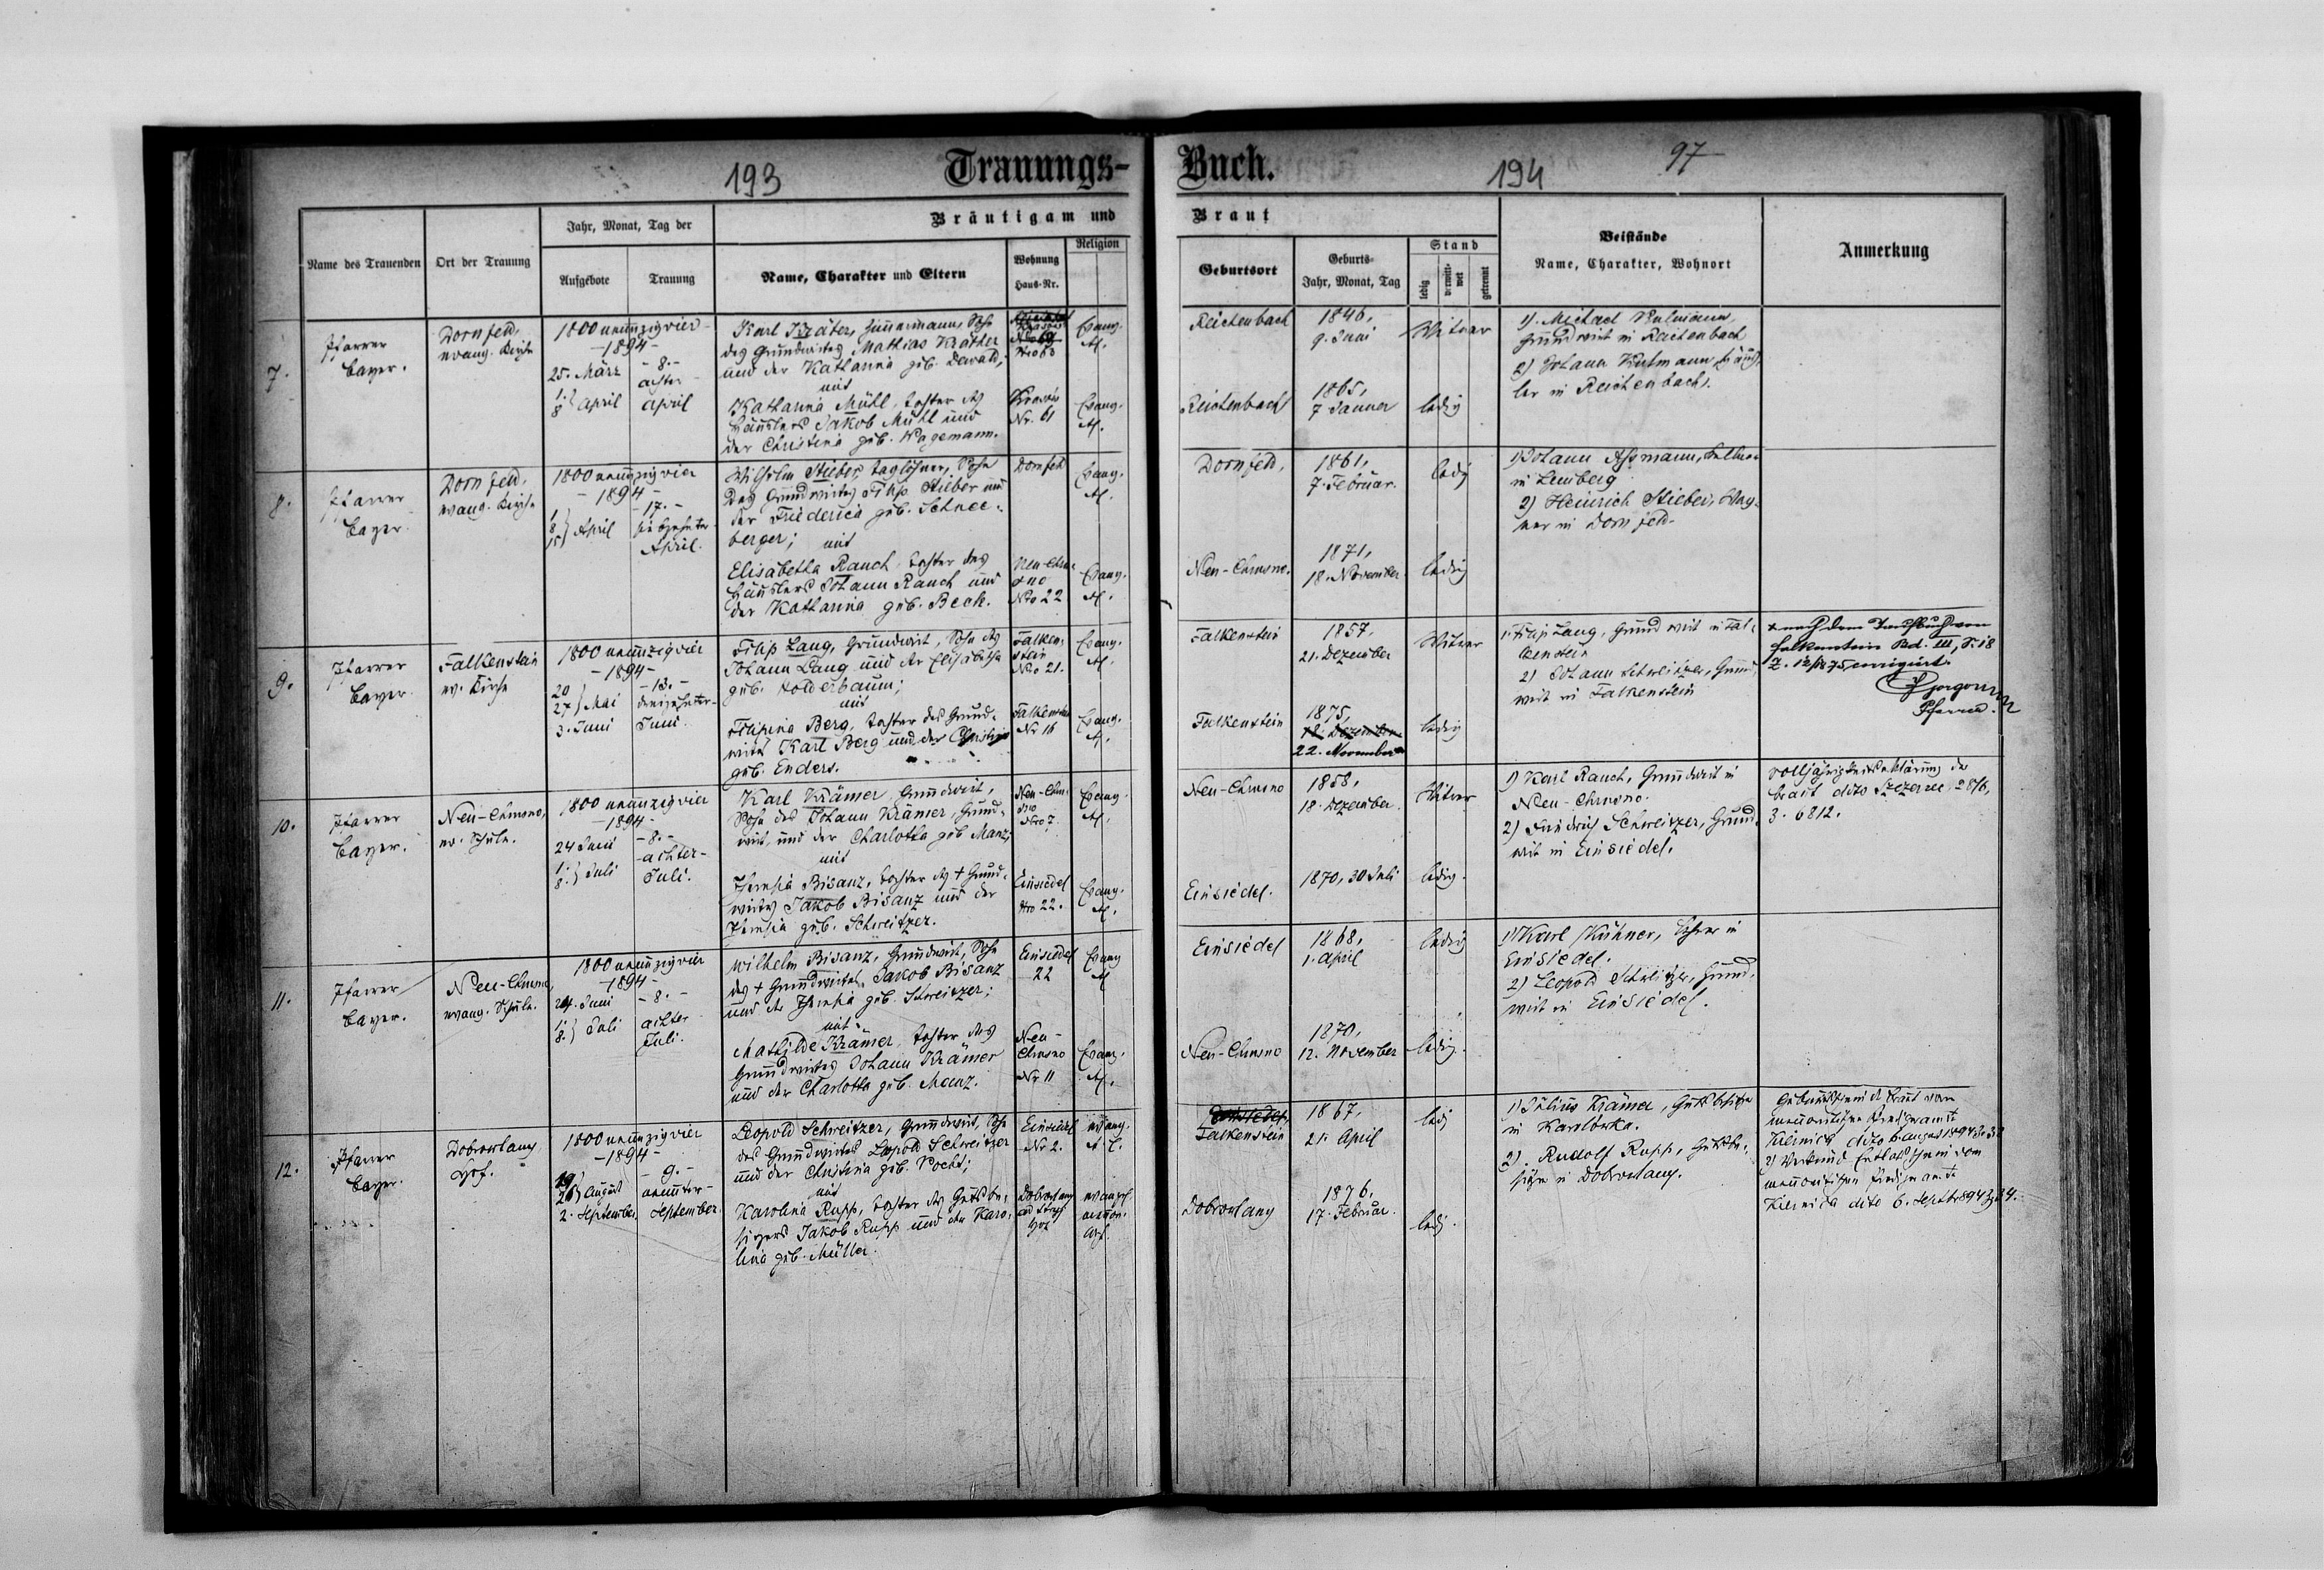 193
Trauungs-
Buch.
194
97
Name des Trauenden
Ort der Trauung
Jahr, Monat, Tag der
Aufgebote
Trauung
Bräutigam und
Name, Charakter und Eltern
Wohnung
Haus-Nr.
Religion
Braut
Geburtsort
Geburts-
Jahr, Monat, Tag
Stand
ledig
verwitt-
wet
getrennt
Beistände
Name, Charakter, Wohnort
Anmerkung
7.
Pfarrer
Bayer.
Dornfeld,
evang. Kirche
1800 neunzigvier
-1894-
25. März
1.
8 } April
-8.-
achter
April
Karl Kräter, Zimmermann, Sohn
des Grundwirtes Mathias Krätter
und der Katharina geb. Dewald;
mit
Katharina Mühl, Tochter des
Häuslers Jakob Mühl und
der Christina geb. Wagemann.
Nro 63
Nr. 61
Evang.
A.
Evang.
A.
Reichenbach
1846,
9. Juni
Witwer
Reichenbach
1865,
7 Januer
ledig
1). Michael
Grundwirt in Reichenbach
2) Johann Häus-
ler in Reichenbach.
8.
Pfarrer
Bayer.
Dornfeld,
evang. Kirche
1800 neunzigvier
-1894-
1
8
15 } April
-17.-
siebzehnter
April.
Wilhelm Stieber, Taglöhner, Sohn
des Grundwirtes Filip Stieber und
der Friederica geb. Schnee-
berger; mit
Elisabetha Rauch, Tochter des
Häuslers Johann Rauch und
der Katharina geb. Bech.
Dornfeld
Neu-Chru-
sno
Nro 22
Evang.
A.
Evang.
A.
Dornfeld,
1861,
7. Februar.
ledig
Neu-Chrusno.
1871,
18. November
ledig
1) Johann Aßmann,
in Lemberg
2) Heinrich Stieber, Wag-
ner in Dornfeld.
9.
Pfarrer
Bayer.
Falkenstein
ev. Kirche
1800 neunzigvier
-1894-
20
27 } Mai
3. Juni
-13.-
dreizehnter
Juni
Filip Lang, Grundwirt, Sohn des
Johann Lang und der Elisabetha
geb. Holderbaum;
mit
Filipina Berg, Tochter des Grund-
wirts Karl Berg und der Christina
geb. Enders.
Falken-
stein
Nro 21.
Falkenstein
Nr 16
Evang.
A.
Evang.
A.
Falkenstein
1857,
21. Dezember
Witwer
Falkenstein
1875,
12. Dezember
22. November
ledig
1. Filip Lang, Grundwirt in Fal-
kenstein
2) Johann Schweitzer, Grund-
wirt in Falkenstein
x nach dem Taufbuch von
Falkenstein Bd. III, S. 18
Z. 12/1875 corrigirt.
Pfarrer.
10.
Pfarrer
Bayer.
Neu-Chrusno,
ev. Schule.
1800 neunzigvier
-1894-
24 Juni
1.
8. } Juli
-8.-
achter-
Juli.
Karl Krämer, Grundwirt,
Sohn des Johann Krämer, Grund-
wirt, und der Charlotta geb. Manz;
mit
Theresia Bisanz, Tochter des + Grund-
wirtes Jakob Bisanz und der
Theresia geb. Schweitzer.
Neu-Chru-
sno
Nro 7.
Einsiedel
Nro 22.
Evang.
A.
Evang.
A.
Neu-Chrusno
1858,
18. Dezember.
Witwer
Einsiedel.
1870, 30 Juli
ledig.
1) Karl Rauch, Grundwirt in
Neu-Chrusno.
2) Friedrich Schweitzer, Grund-
wirt in Einsiedel.
Volljährigkeitserklärung der
Braut dito Szczerzec 28/6,
3. 6812.
11.
Pfarrer
Bayer.
Neu-Chrusno,
evang. Schule.
1800 neunzigvier
-1894-
24. Juni
1.
8. } Juli
-8.-
achter
Juli.
Wilhelm Bisanz, Grundwirt, Sohn
des + Grundwirtes Jakob Bisanz
und der Theresia geb. Schweitzer;
mit
Mathilde Krämer, Tochter des
Grundwirtes Johann Krämer
und der Charlotta geb. Manz.
Einsiedel
22
Neu-
Chrusno
Nr 11
Evang
A
Evang.
A.
Einsiedel
1868,
1. April
ledig
Neu-Chrusno
1870,
12. November
ledig.
1) Karl Kühner, Lehrer in
Einsiedel.
2) Leopold Schweitzer, Grund-
wirt in Einsiedel.
12.
Pfarrer
Bayer.
Dobrowlany
Hof.
1800 neunzigvier
-1894-
19
26 } August
2. September,
-9.-
neunter-
September.
Leopold Schweitzer, Grundwirt, Sohn
des Grundwirtes Leopold Schweitzer
und der Christina geb. Pocht;
mit
Karolina Rupp, Tochter des Gutsbe-
sitzers Jakob Rupp und der Karo-
lina geb. Müller.
Einsiedel
Nr 2.
Dobrowlany
Hof
evang.
A. C.
Einsiedel,
Falkenstein
1867,
21. April
ledig
Dobrowlany
1876,
17. Februar.
ledig.
1) Julius Krämer, Gutsbesitzer
in Karolówka.
2). Rudolf Rupp, Gutsbe-
sitzer in Dobrowlany.
mennonitischen Predigeramt
Kiernica dito 6. August 1894
2) Verkünd. Entlassschein vom
mennonitischen Predigeramt
Kiernica dito 6. Septb. 1894 Z. 34.